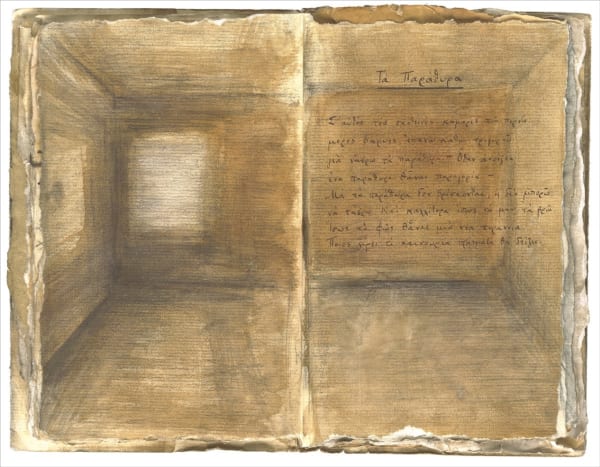 Τα Παράθυρα
Σ' αυτές τες σκοτεινές κάμαρες που περνώ
μέρες βαρυές επάνω κάτω τριγυρνώ
για νάβρω τα παράθυρα - Όταν ανοίξει
ένα παράθυρο θάναι παρηγορία -
Μα τα παράθυρα δεν βρίσκονται, ή δεν μπορώ
να τάβρω. Και καλλίτερα ίσως να μην τα βρω
Ίσως το φως θάναι μια νέα τυραννία
Ποιος ξέρει τι καινούρια πράγματα θα δείξει.